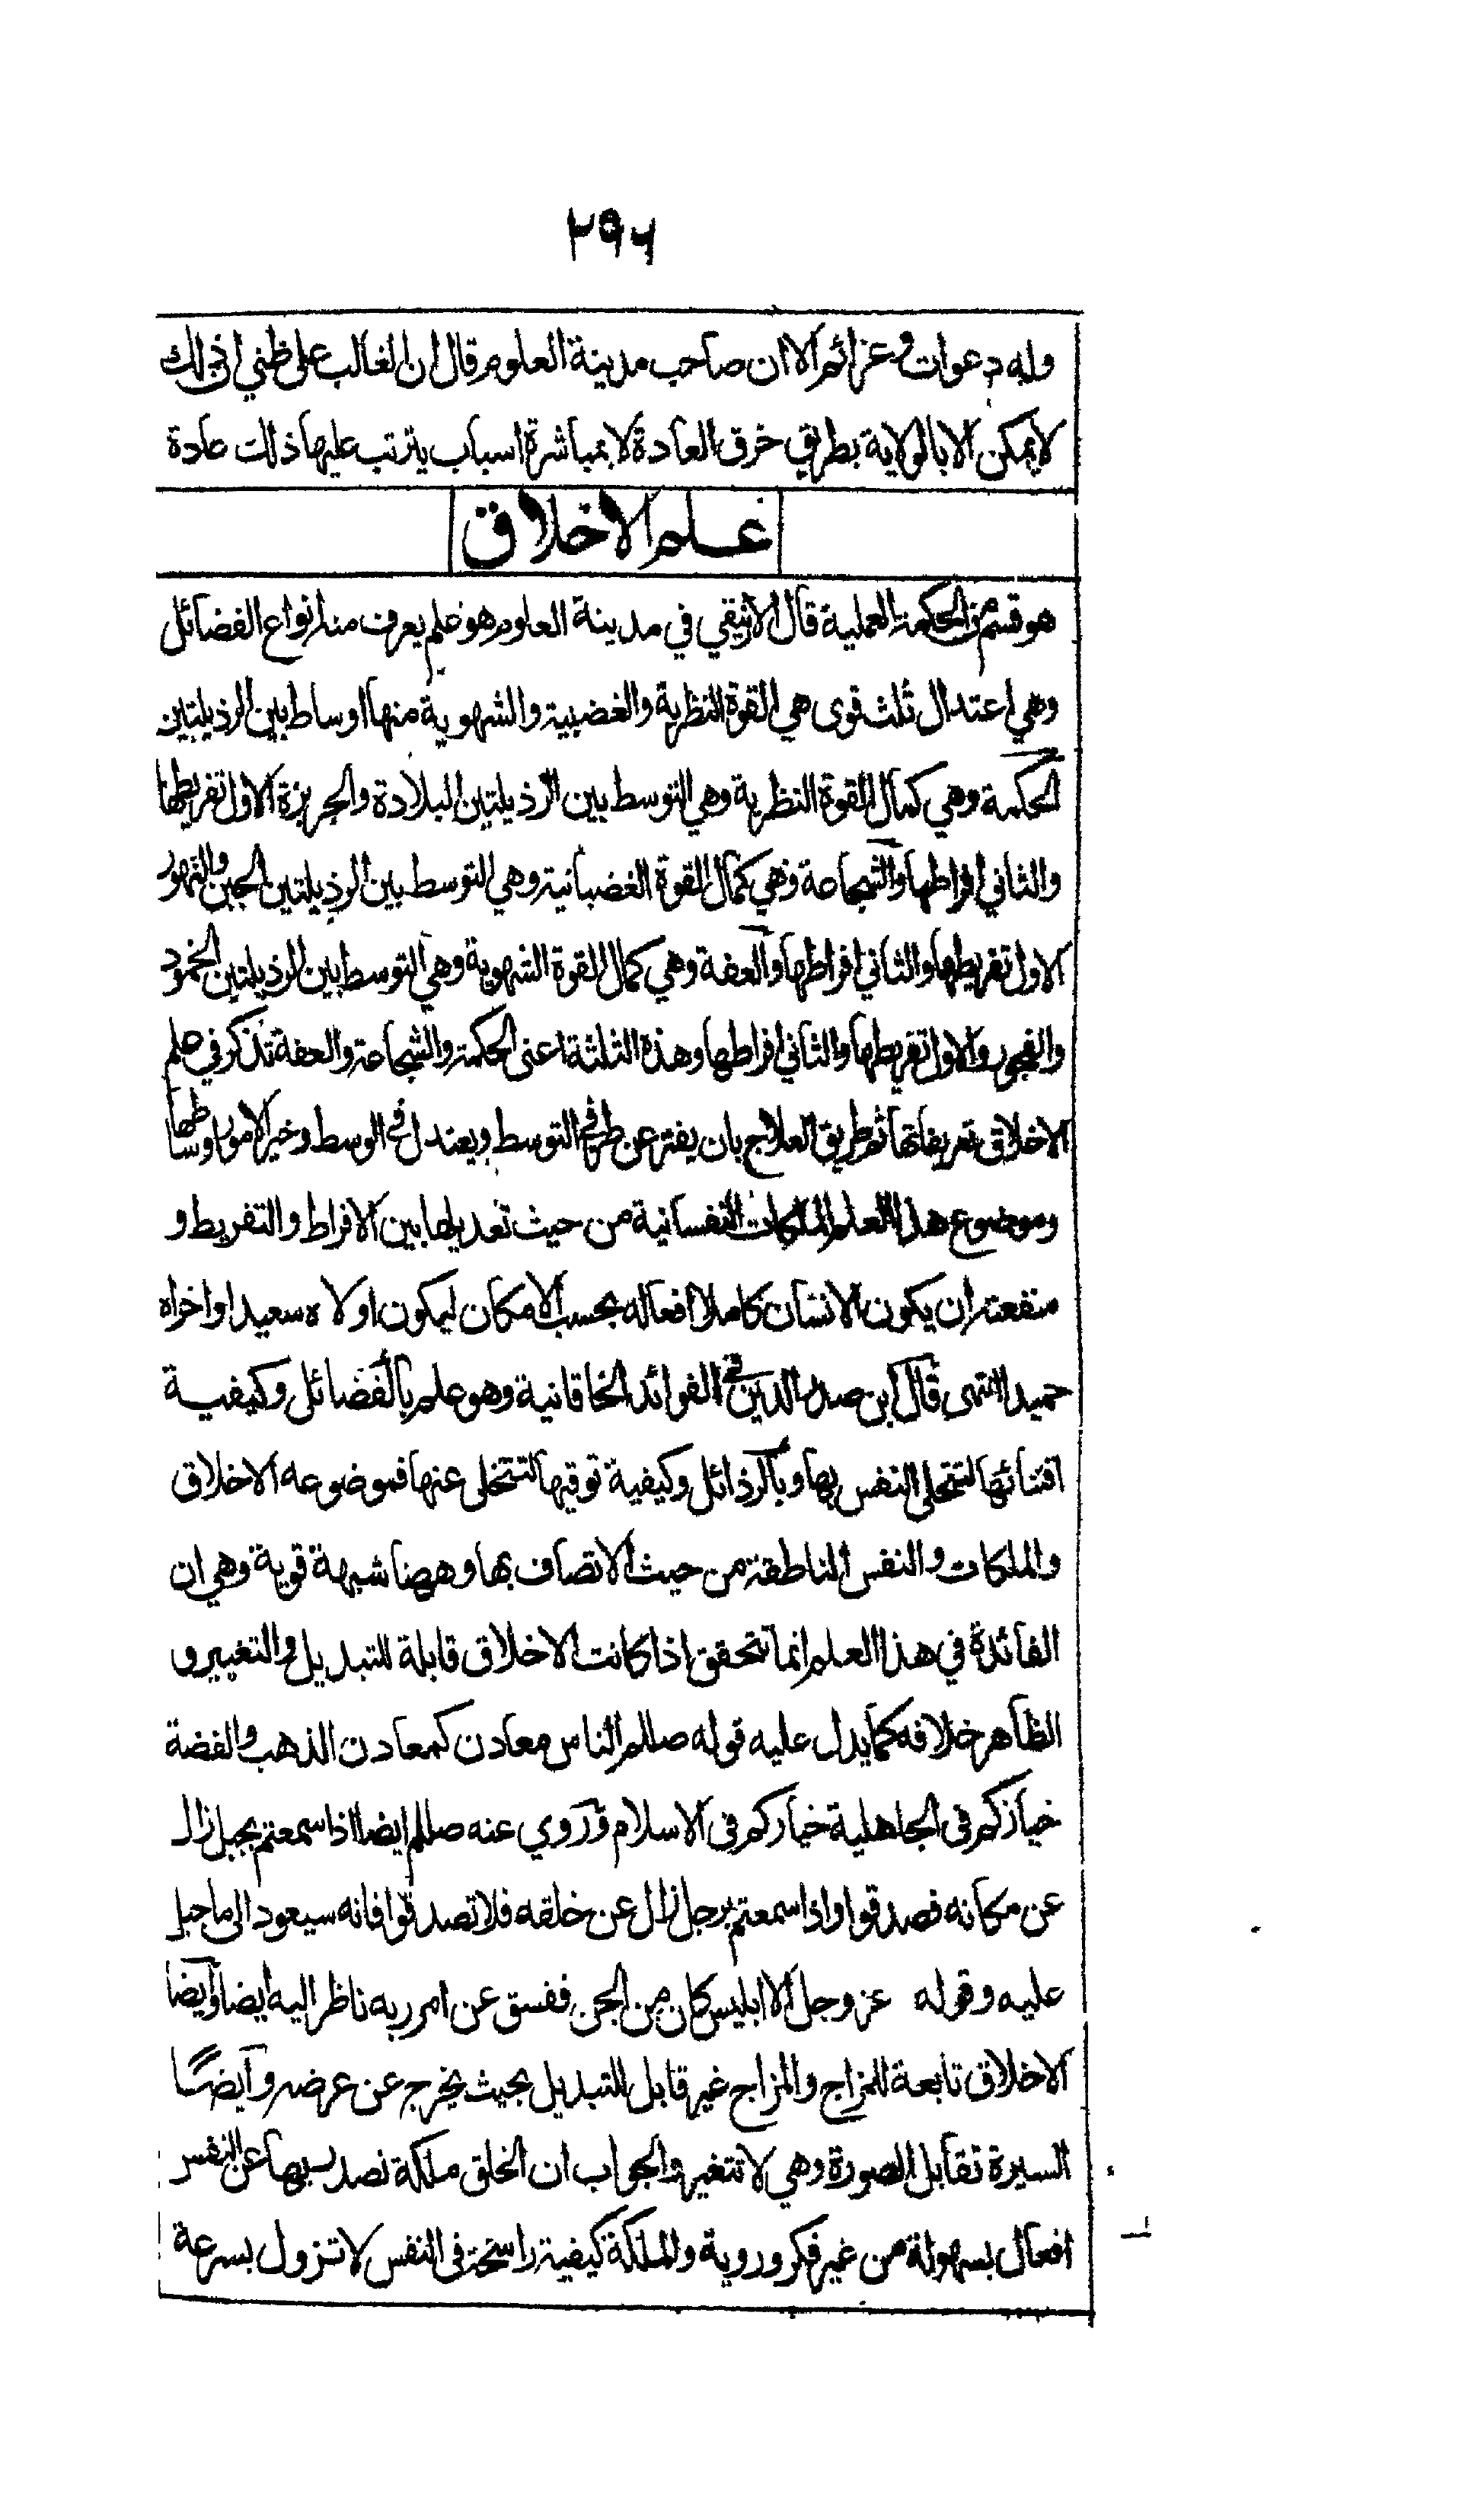 ٢٩٦
وله دعوات وعزائم الا ان صاحب مدينة العلوم قال ان الغالب على ظني ان ذلك
لا يمكن الا بالولاية بطريق خرق العادة لا بمباشرة اسباب يترتب عليها ذلك عادة
علم الاخلاق
هو قسم من الحكمة العملية قال الارنيقي في مدينة العلوم هو علم يعرف منه انواع الفضائل
وهي اعتدال ثلث قوى هي القوة النظرية والغضبية والشهوية منها اوساط بين الرذيلتين
الحكمة وهي كمال القوة النظرية وهي التوسط بين الرذيلتين البلادة والجربزة الاول تفريطها
والثاني افراطها والشجاعة وهي كمال القوة الغضبانية وهي التوسط بين الرذيلتين الجبن والتهور
الاول تفريطها والثاني افراطها والعفة وهي كمال القوة الشهوية وهي التوسط بين الرذيلتين الخمود
والفجور والاول تفريطها والثاني افراطها وهذه الثلثة اعني الحكمة والشجاعة والعفة تذكر في علم
الاخلاق تعريفاتها ثم طريق العلاج بان يفتر عن طرفي التوسط ويعتدل في الوسط وخير الامور اوساطها
وموضوع هذا العلم الملكات النفسانية من حيث تعديلها بين الافراط والتفريط و
منفعته ان يكون الانسان كاملا افعاله بحسب الامكان ليكون اولاه سعيدا واخراه
حميدا انتهى قال ابن صدر الدين في الفوائد الخاقانية وهو علم بالفضائل وكيفية
اقتنائها لتتحلى النفس بها وبالرذائل وكيفية توقيها لتتخلى عنها فموضوعه الاخلاق
والملكات والنفس الناطقة من حيث الاتصاف بها وههنا شبهة قوية وهي ان
الفائدة في هذا العلم انما تتحقق اذا كانت الاخلاق قابلة للتبديل والتغيير و
الظاهر خلافه كما يدل عليه قوله صللم الناس معادن كمعادن الذهب والفضة
خياركم في الجاهلية خياركم في الاسلام وروي عنه صللم ايضا اذا سمعتم بجبل زال
عن مكانه فصدقوا واذا سمعتم برجل زال عن خلقه فلا تصدقوا فانه سيعود الى ما جبل
عليه وقوله عز وجل الا ابليس كان من الجن ففسق عن امر ربه ناظر اليه ايضا وايضا
الاخلاق تابعة للمزاج والمزاج غير قابل للتبديل بحيث يخرج عن عرضه وايضًا
السيرة تقابل الصورة وهي لا تتغير والجواب ان الخلق ملكة تصدر بها عن النفس
افعال بسهولة من غير فكر وروية والملكة كيفية راسخة في النفس لا تزول بسرعة